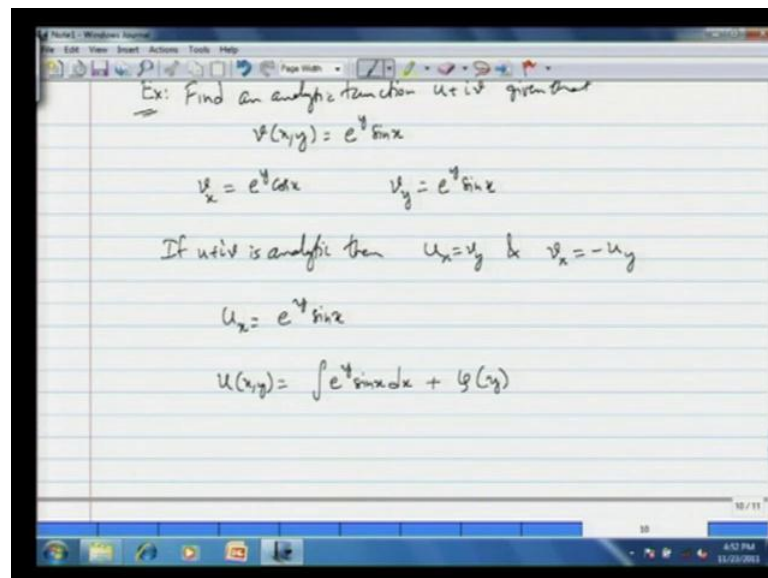 Note1 - Windows Journal
File Edit View Insert Actions Tools Help
Page Width
Ex: Find an analytic function u+iv given that
v(x,y) = e^y sin x
v_x = e^y cos x v_y = e^y sin x
If u+iv is analytic then u_x = v_y & v_x = -u_y
u_x = e^y sin x
u(x,y) = ∫ e^y sin x dx + φ(y)
10 / 11
10
4:52 PM
11/23/2011